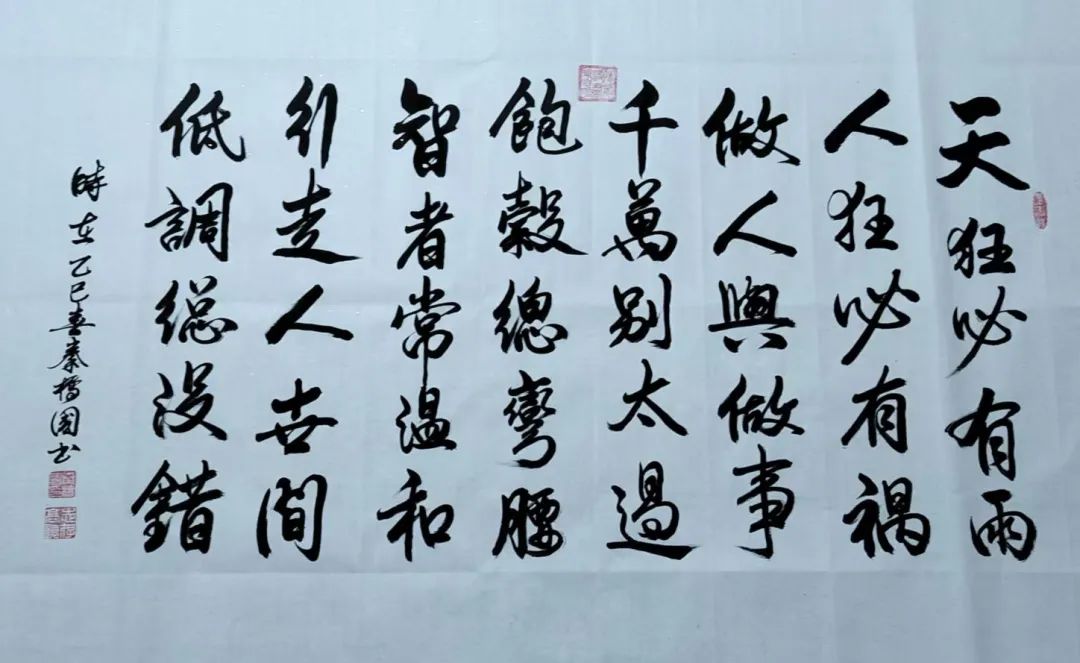 天狂必有雨
人狂必有禍
做人與做事
千萬别太過
飽穀總彎腰
智者常温和
行走人世間
低調総没錯
時在乙巳春秦橋園书